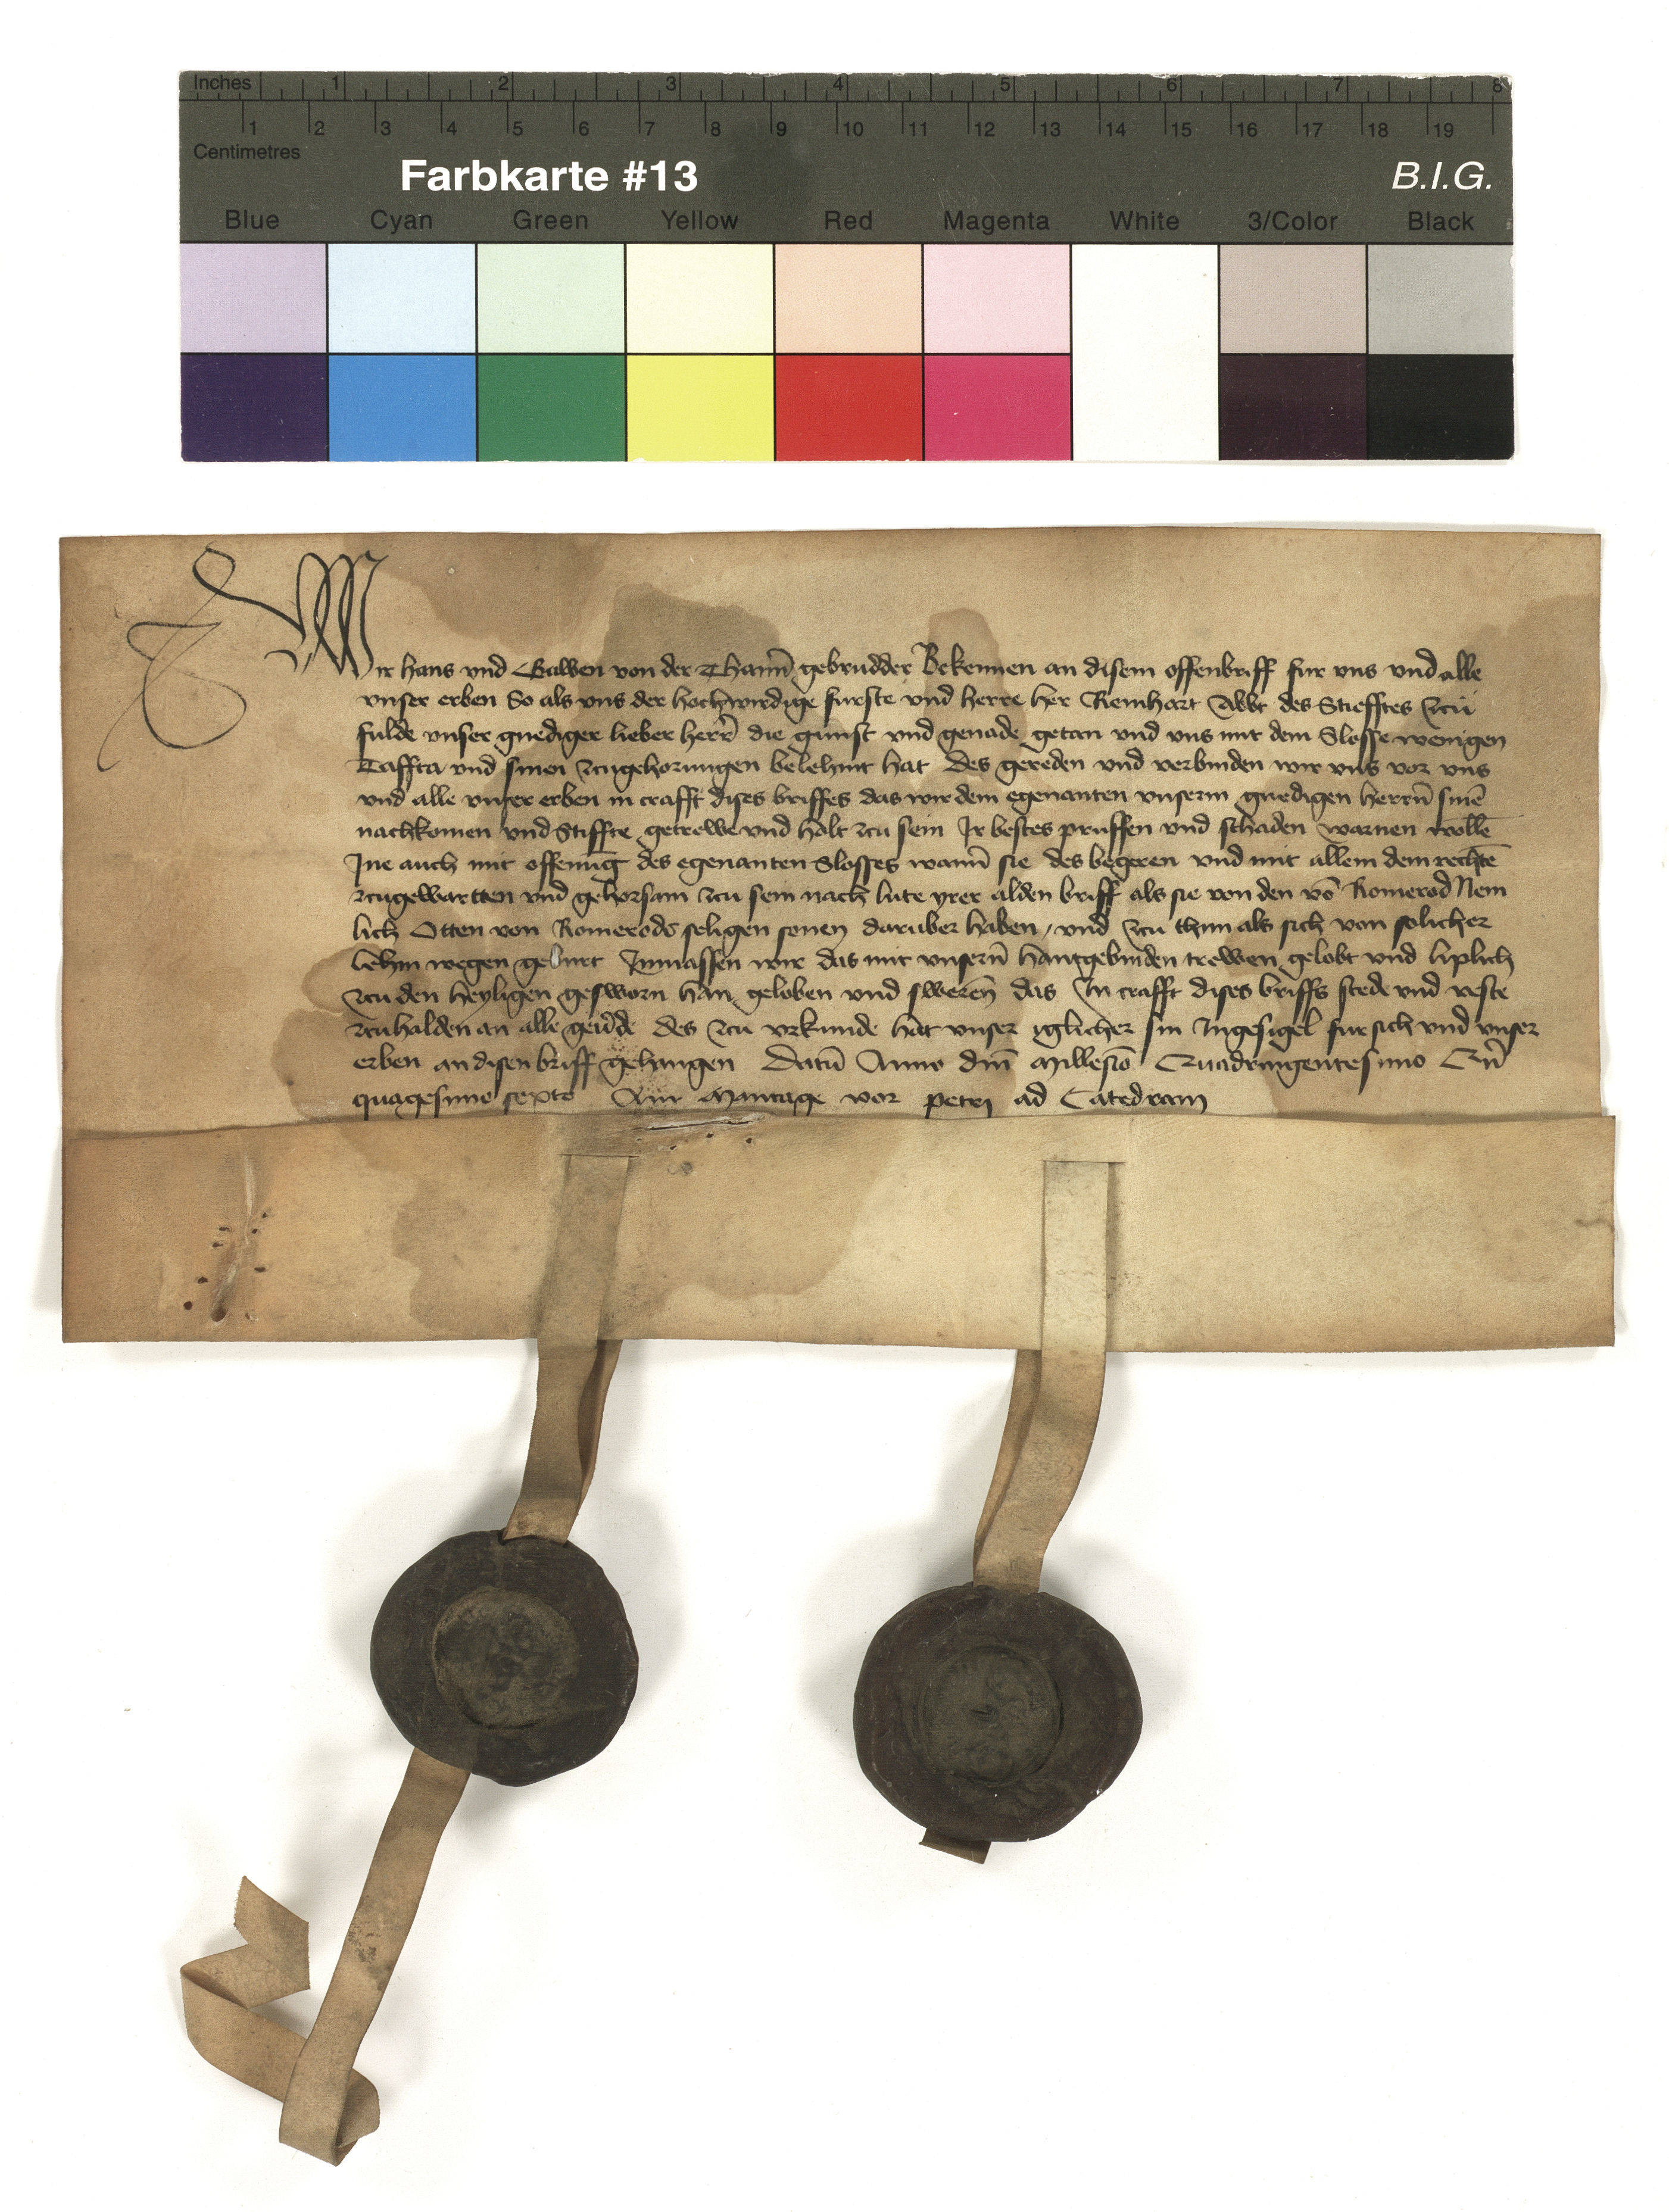 Inches 1 2 3 4 5 6 7 8
1 2 3 4 5 6 7 8 9 10 11 12 13 14 15 16 17 18 19
Centimetres
Farbkarte #13 B.I.G.
Blue Cyan Green Yellow Red Magenta White 3/Color Black
Wir hans vnd von der Thann̄ gebrudder Bekennen an disem offenbriff fur vns vnd alle
vnser erben So als vns der hochwirdige furste vnd herre her Reinhart Abbt des Stiefftes zcu
fulde vnser gnediger lieber herr̄ die gunst vnd genade getan vnd vns mit dem Slosse wenigen
Taffta vnd sinen zcugehorungen belehnt hat des gereden vnd verbinden wir vns vor vns
vnd alle vnser erben in crafft dises briffes das wir dem egenanten vnserm gnedigen herrn̄ sinē
nachkomen vnd Stiffte getrewe vnd halt zcu sein Ir bestes pruffen vnd schaden warnen wollē
Ine auch mit offenūg des egenanten Slosses wann̄ sie des begeren vnd mit allem dem rechtē
zcugewartten vnd gehorsam zcu sein nach lute yrer alden briff als sie von den vō Romerod Nem
lich Otten von Romerods seligen sonen daruber haben / vnd zcu thun als sich von solicher
lehin wegen geburt Inmassen wir das mit vnsern̄ hantgebinden trewen gelobt vnd liplich
zcu den heyligen gesworn han geloben vnd sweren̄ das In crafft dises briffs stede vnd veste
zcuhalden an alle geūde des zcu vrkunde hat vnser iglicher sin Ingesigel fur sich vnd vnser
erben an disen briff gehangen Datū Anno dm̄ Millesīo Quadringentesimo Qn̄
quagesimo sexto Am Mantage vor petri ad Catedram